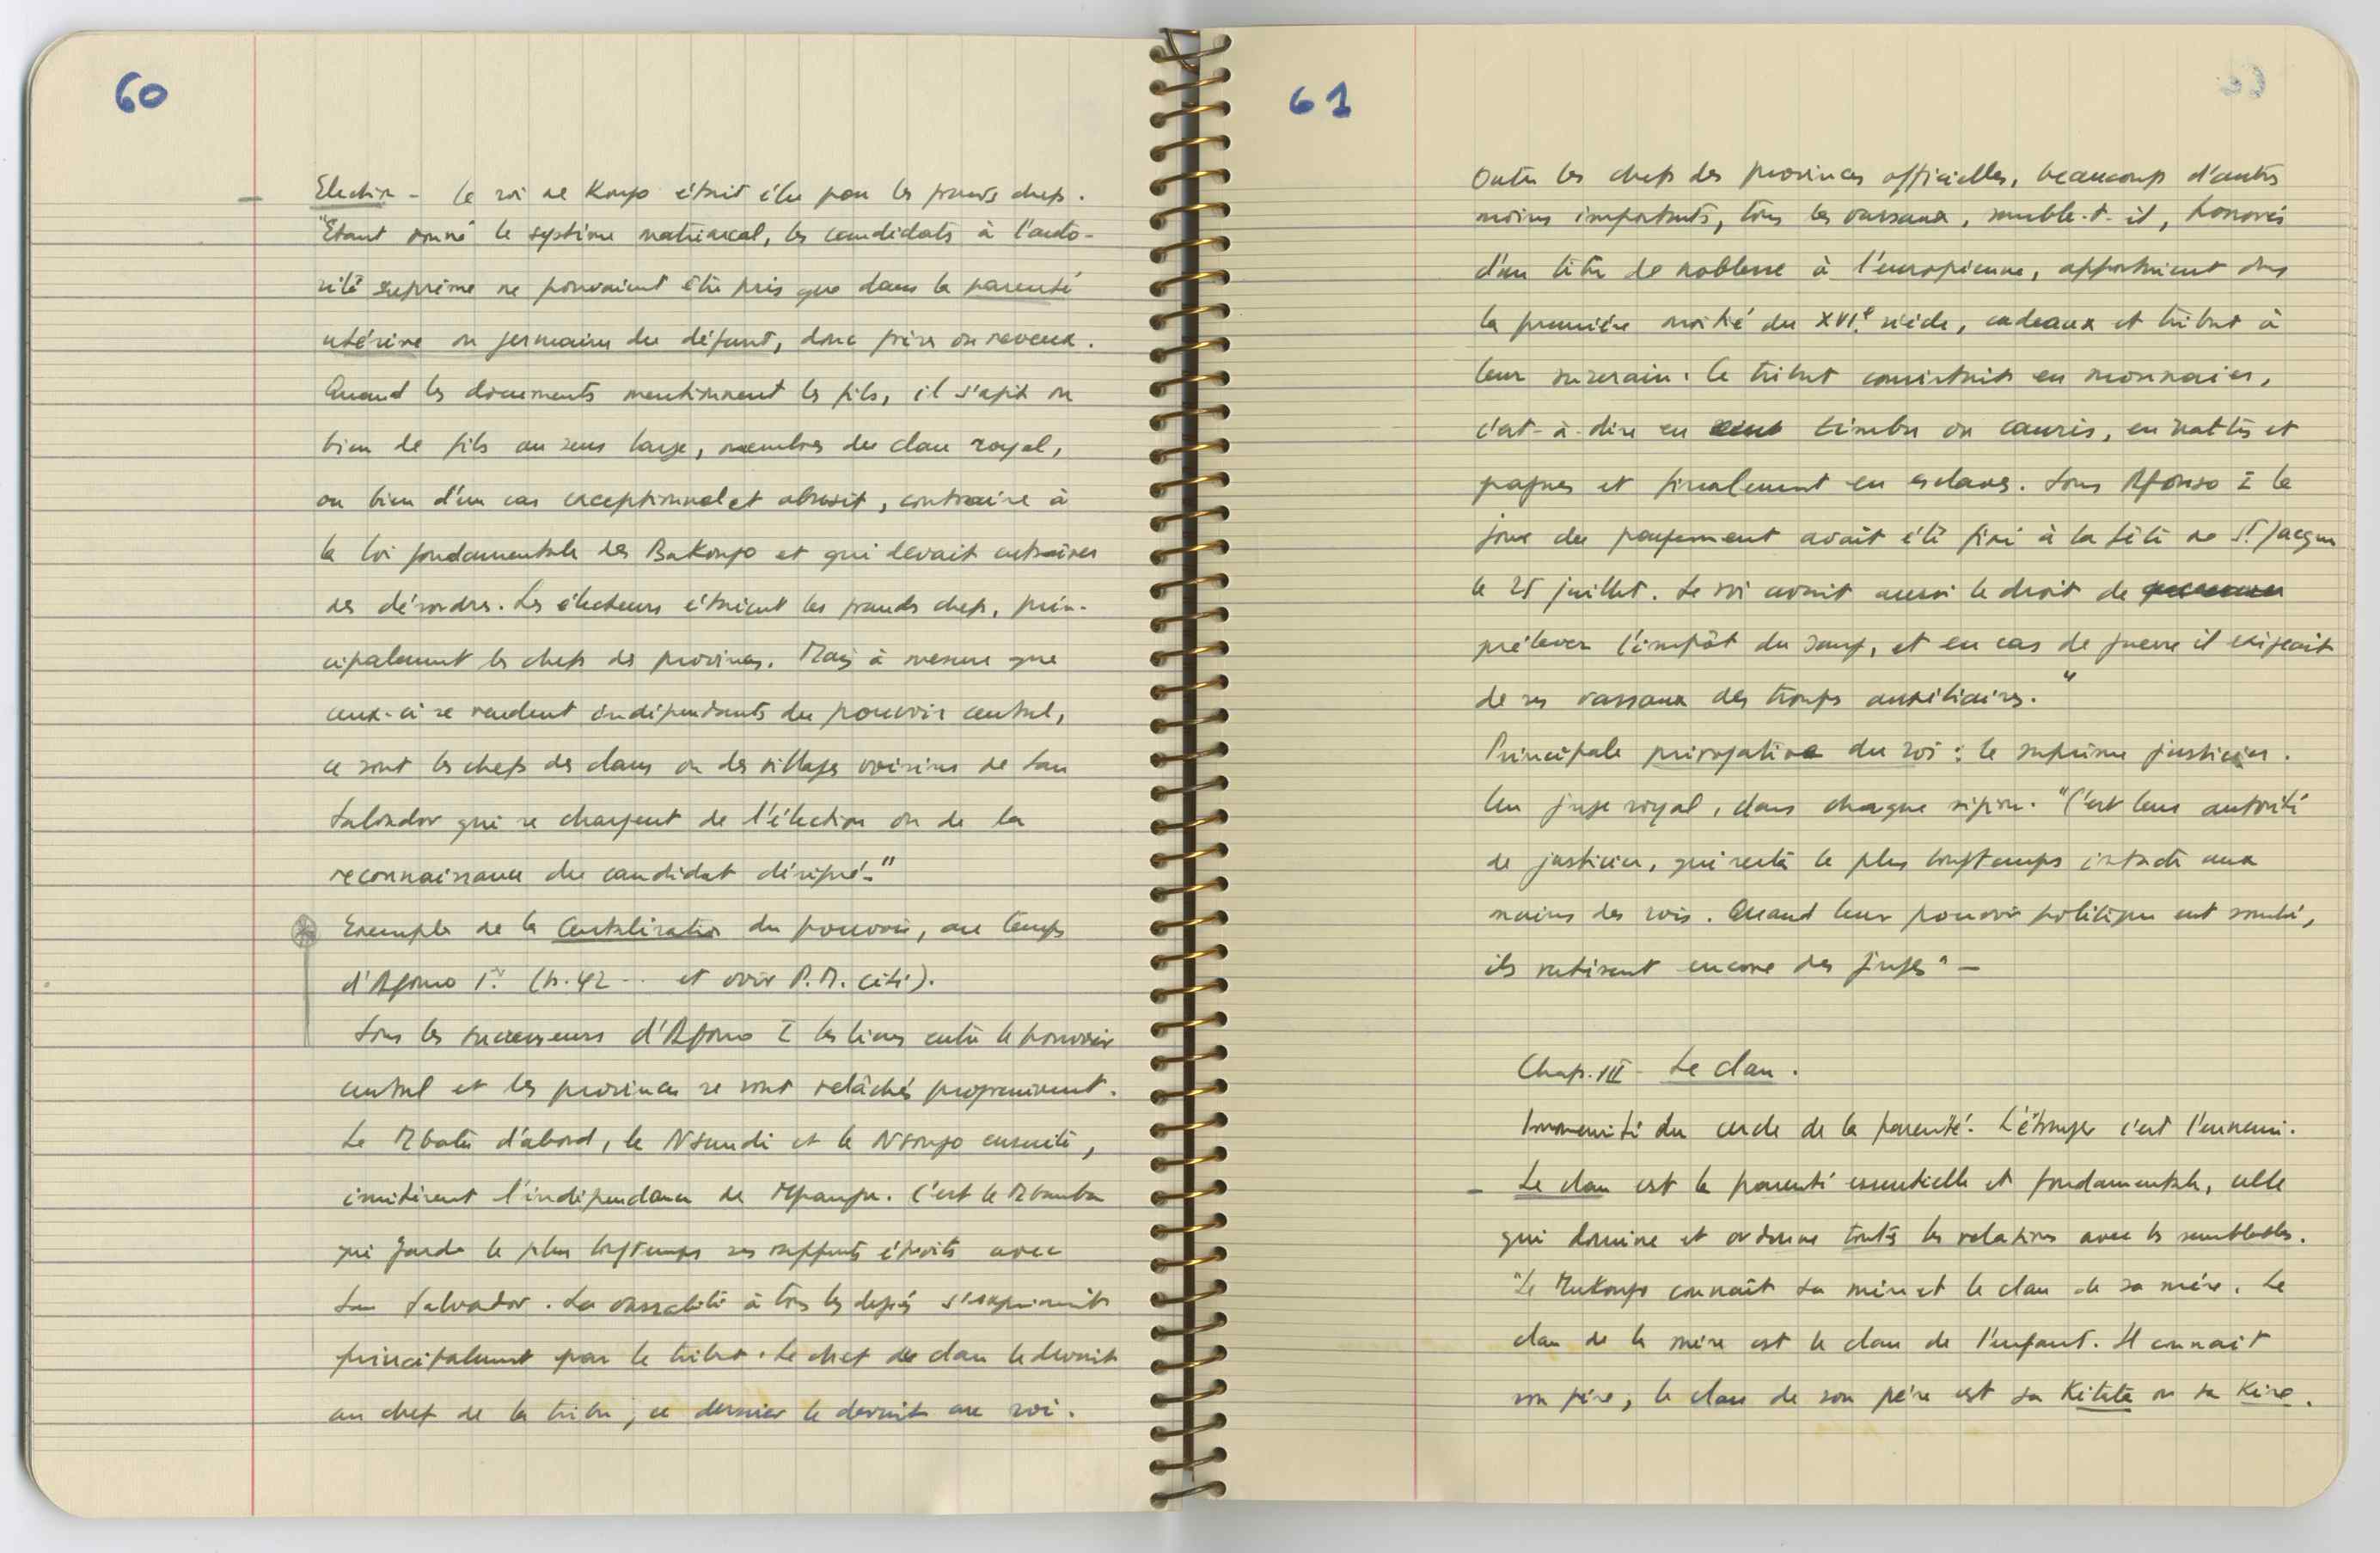 60
- Election - Le roi de Kongo était élu par les grands chefs.
"Etant donné le système matriarcal, les candidats à l'auto-
rité suprême ne pouvaient être pris que dans la parenté
utérine ou germaine du défunt, donc frères ou neveux.
Quand les documents mentionnent les fils, il s'agit ou
bien de fils au sens large, membres du clan royal,
ou bien d'un cas exceptionnel et abusif, contraire à
la loi fondamentale des BaKongo et qui devait entraîner
des désordres. Les électeurs étaient les grands chefs, prin-
cipalement les chefs des provinces. Mais à mesure que
ceux-ci se rendent indépendants du pouvoir central,
ce sont les chefs des clans ou des villages voisins de San
Salvador qui se chargent de l'élection ou de la
reconnaissance du candidat désigné."
Exemples de la Centralisation du pouvoir, au temps
d'Afonso Ir. (p. 42 ... et voir P.M. cité).
Sous les successeurs d'Afonso I les liens entre le pouvoir
central et les provinces se sont relâchés progressivement.
Le Mbata d'abord, le Nsundi et le Nsongo ensuite,
imitèrent l'indépendance de Mpangu. C'est le Mbamba
qui garda le plus longtemps ses rapports étroits avec
San Salvador. La vassalité à tous les degrés s'exprimait
principalement par le tribut. Le chef de clan le devait
au chef de la tribu; ce dernier le devait au roi.
61
Outre les chefs des provinces officielles, beaucoup d'autres
moins importants, tous les vassaux, semble-t-il, honorés
d'un titre de noblesse à l'européenne, apportaient dans
la première moitié du XVIe. siècle, cadeaux et tribut à
leur suzerain. Le tribut consistait en monnaies,
c'est-à-dire en zimbu ou cauris, en nattes et
pagnes et finalement en esclaves. Sous Afonso I le
jour du payement avait été fixé à la fête de St. Jacques
le 25 juillet. Le roi avait aussi le droit de
prélever l'impôt du sang, et en cas de guerre il exigeait
de ses vassaux des troupes auxiliaires."
Principale prérogative du roi: le suprême justicier.
Un juge royal, dans chaque région. "C'est leur autorité
de justicier, qui resta le plus longtemps intacte aux
mains des rois. Quand leur pouvoir politique eut sombré,
ils restèrent encore des juges" -
Chap. III - Le clan.
Immensité du cercle de la parenté. L'étranger c'est l'ennemi.
- Le clan est la parenté essentielle et fondamentale, celle
qui domine et ordonne toutes les relations avec les semblables.
"Le MuKongo connaît sa mère et le clan de sa mère. Le
clan de la mère est le clan de l'enfant. Il connait
son père, le clan de son père est sa Kitata ou sa Kise.